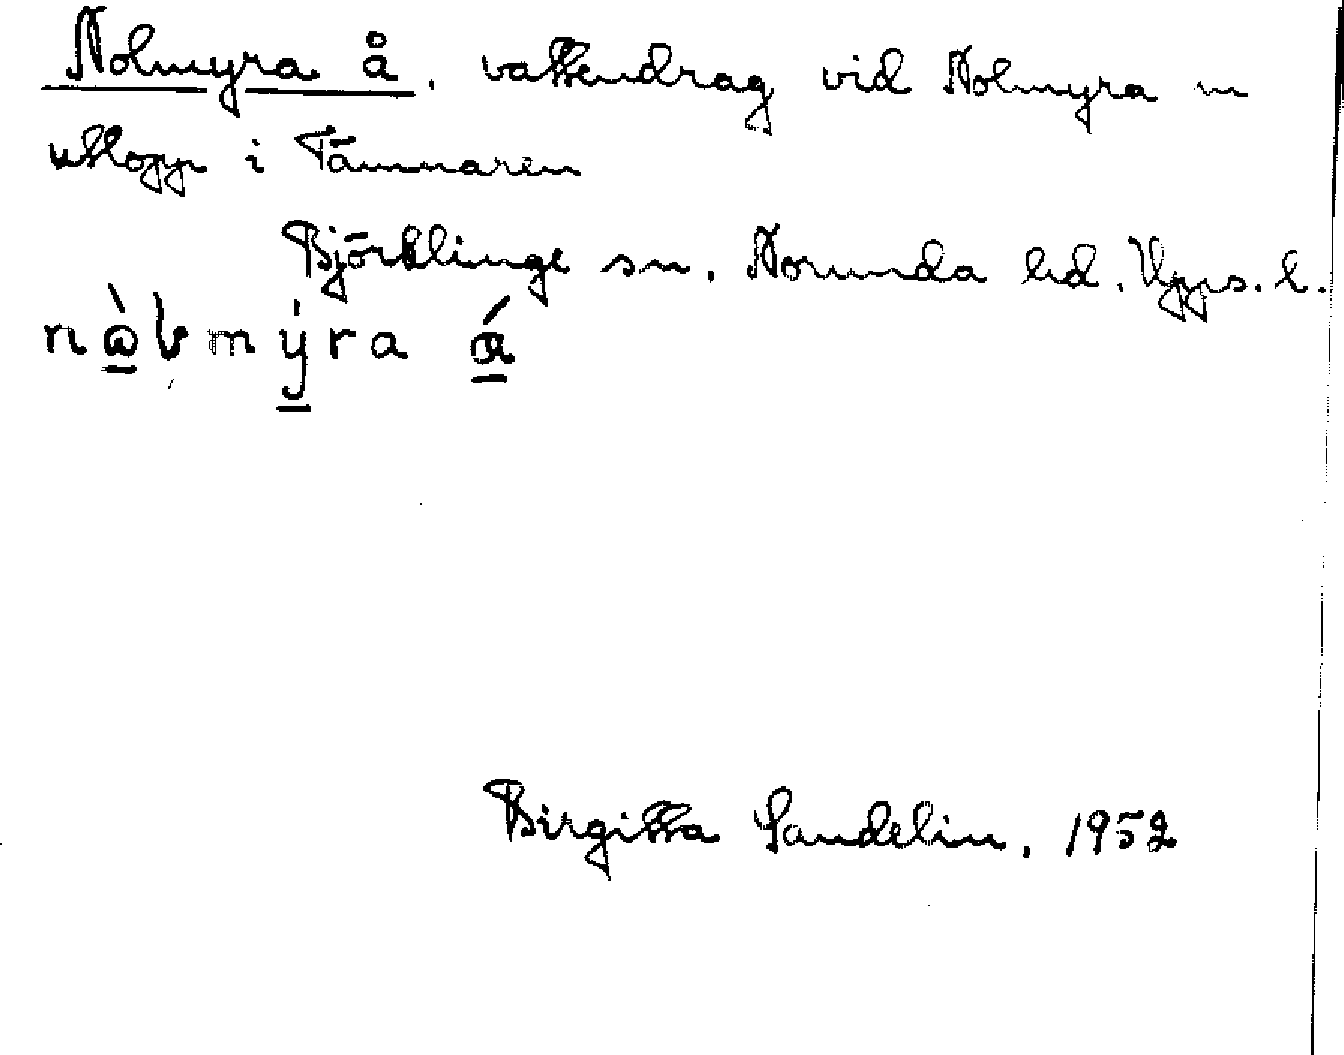 Nolmyra å. vattendrag vid Nolmyra m
utlopp i Tämnaren
Björklinge sn. Norunda hd. Upps. l.
Birgitta Sandelin. 1952